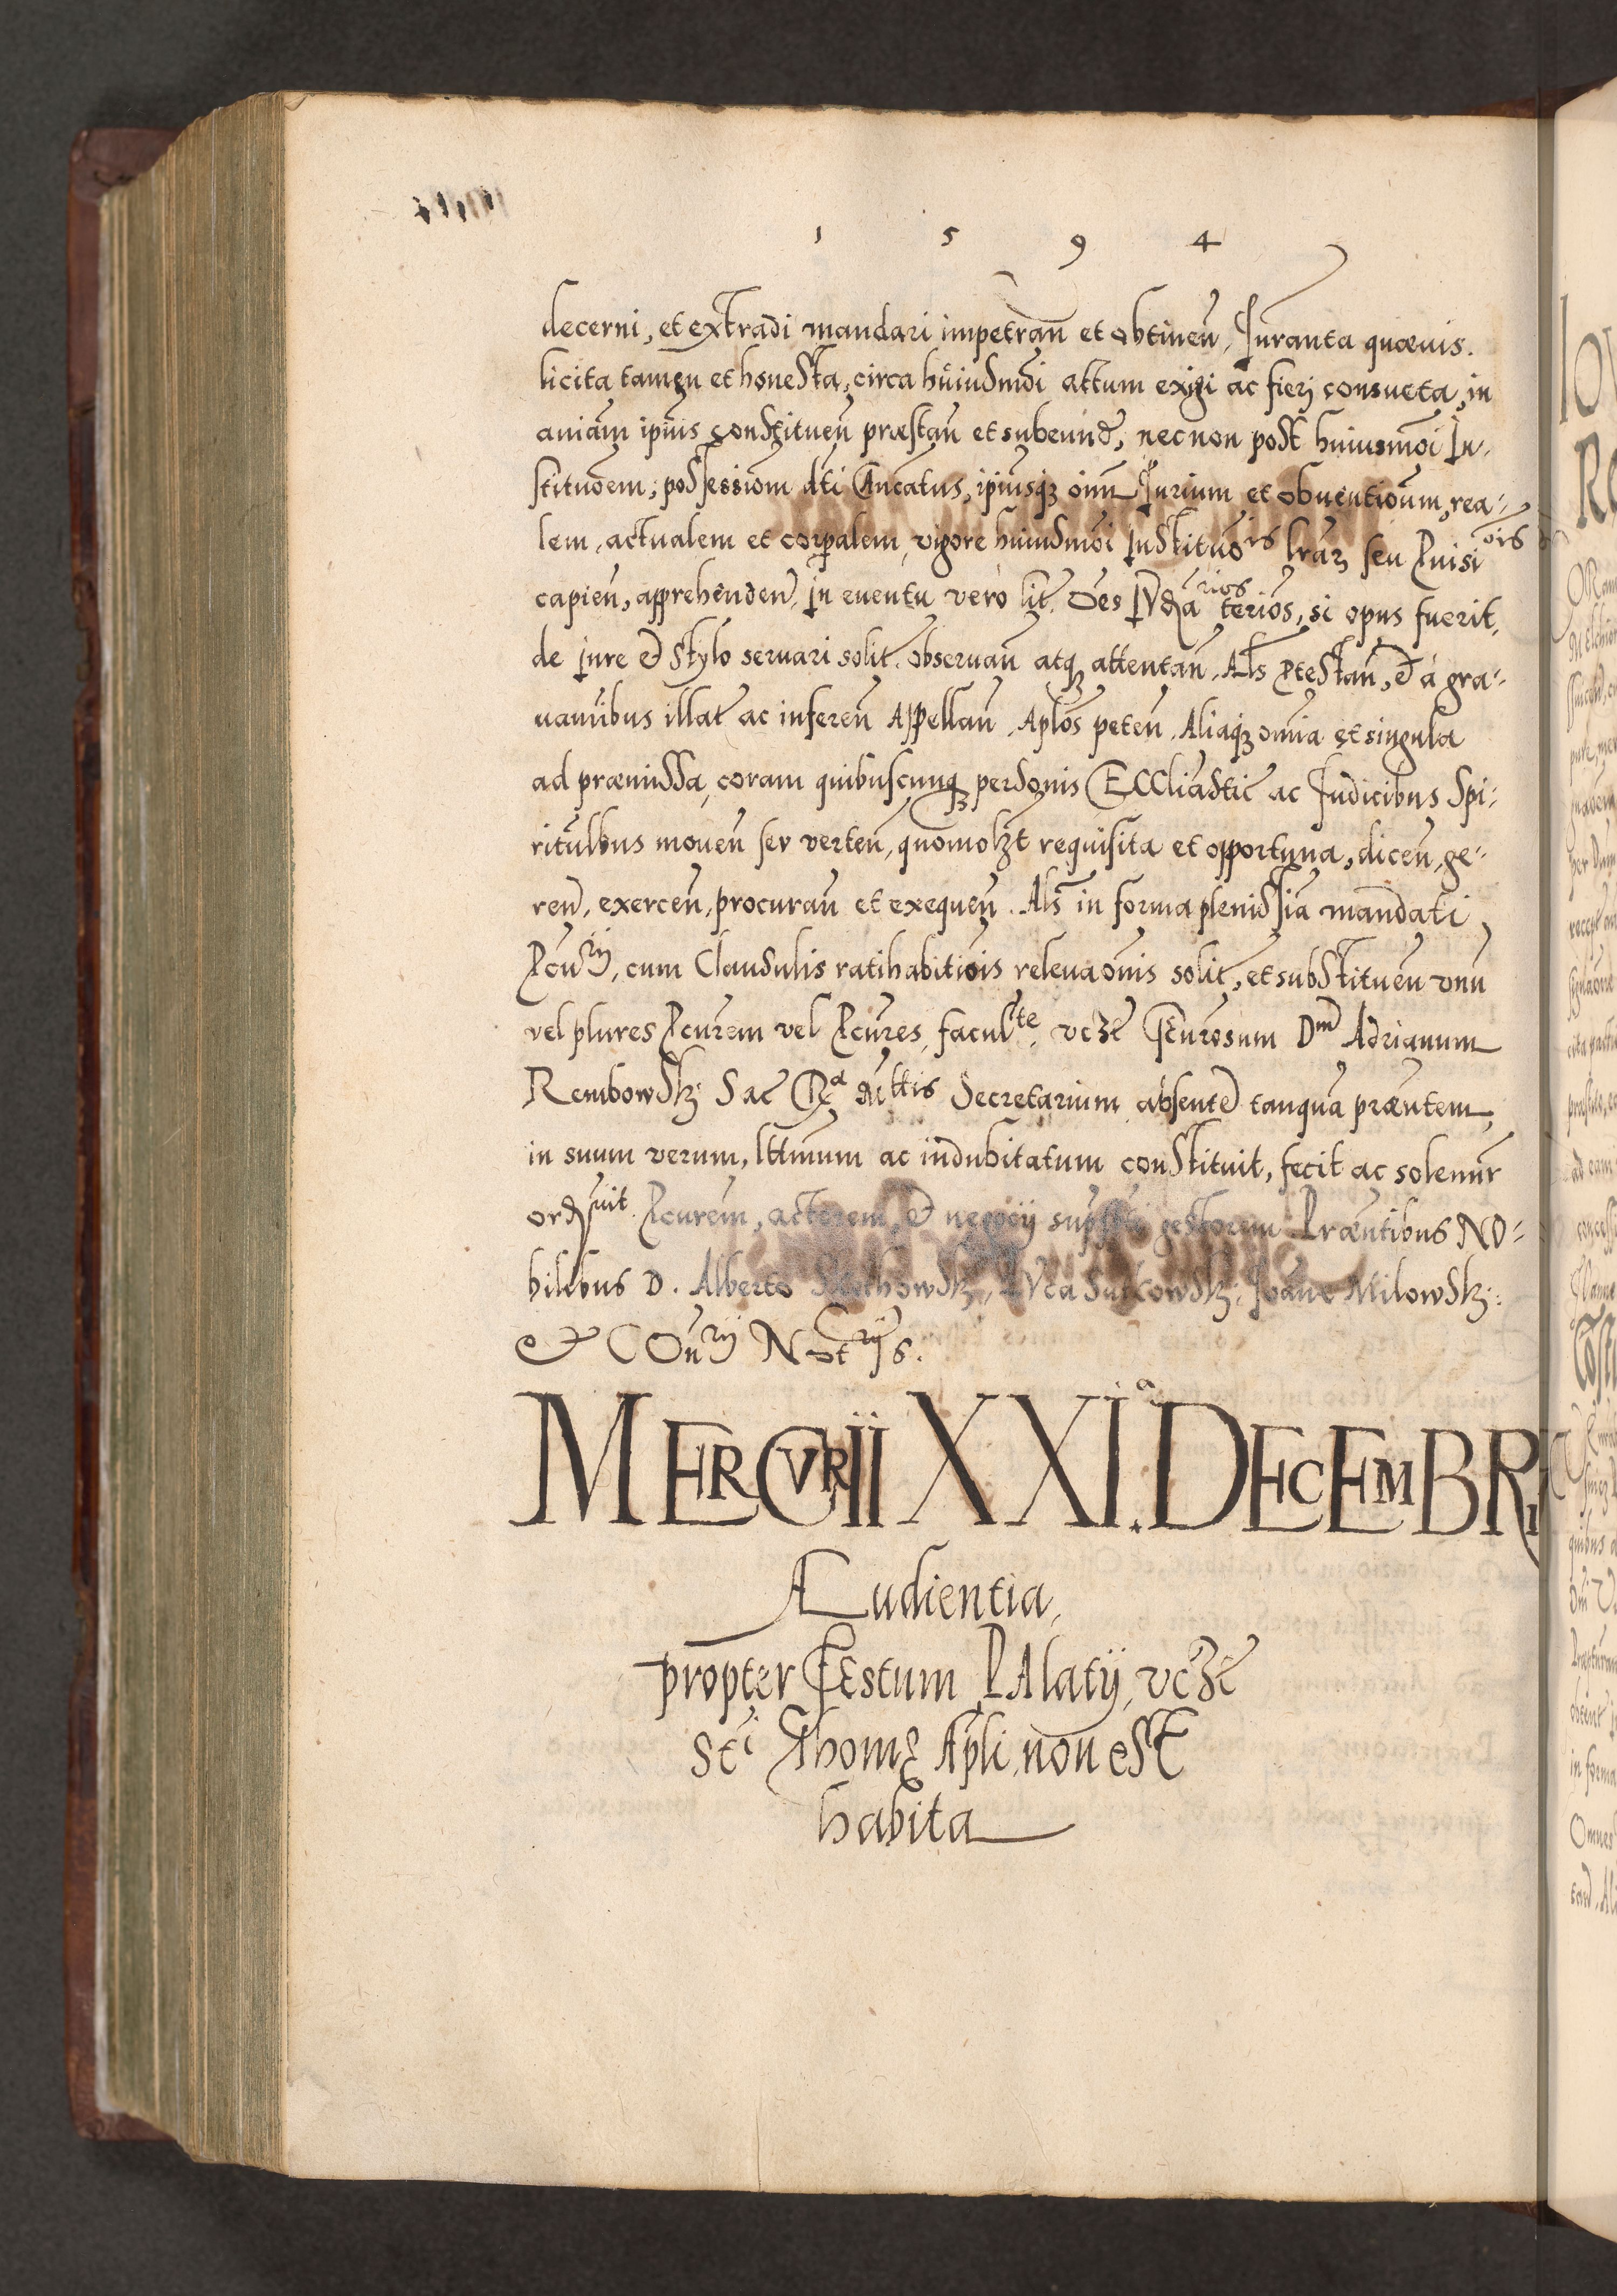 1 5 9 4
decerni, et extradi mandari impetrañ et obtineñ, Juranta quævis.
licita tamen et honesta, circa huiusmõi attum exigi ac fierj consueta, in
aniam ipius constitueñ præstañ et subeund, necnon post huiusmõi In-
stituõem, possessiom dti Ancatus, ipiusq3 oium Jurium et obventioum, rea-
lem, actualem et corpalem, vigore huiusmõi Institutõis lrarz seu Puisiois
capieñ, apprehendeñ. In eventu vero lit. Oes Iudiarios terios, si opus fuerit,
de jure et stylo servari solit. observañ atq3 attentañ. Als Ptestañ, et à gra-
vamibus illat ac infereñ Appellañ. Aplos peteñ. Aliaq3 omnia et singula
ad præmissa, coram quibuscunq3 personis Eccliastic ac Judicibus Spi-
ritulbus moueñ seu verteñ, quomolzt requisita et opportuna, diceñ, ge-
reñ, exerceñ, procurañ et exequeñ. Als in forma plenissia mandati
Pcurij, cum Clausulis ratihabitiois relevaonis solit, et substitueñ unu
vel plures Pcurem vel Pcures, facult te. vczt Generosum Dm Adrianum
Rembowskj Sac Ra Mttis Secretarium absente tanqua præntem,
in suum verum, lttimum ac indubitatum constituit, fecit ac solemnr
ordivit. Pcurem, actorem, et negocij supsti gestorem Præntibus NO-
bilibus D. Alberto Luca Sulkowskj, Joane Milowskj:
et COnrij Notrijs.
MERCVRII XXI.a DECEMBRI
Audientia,
propter Festum PAlatij, vczt
Sti Thomę Apli, non est
habita